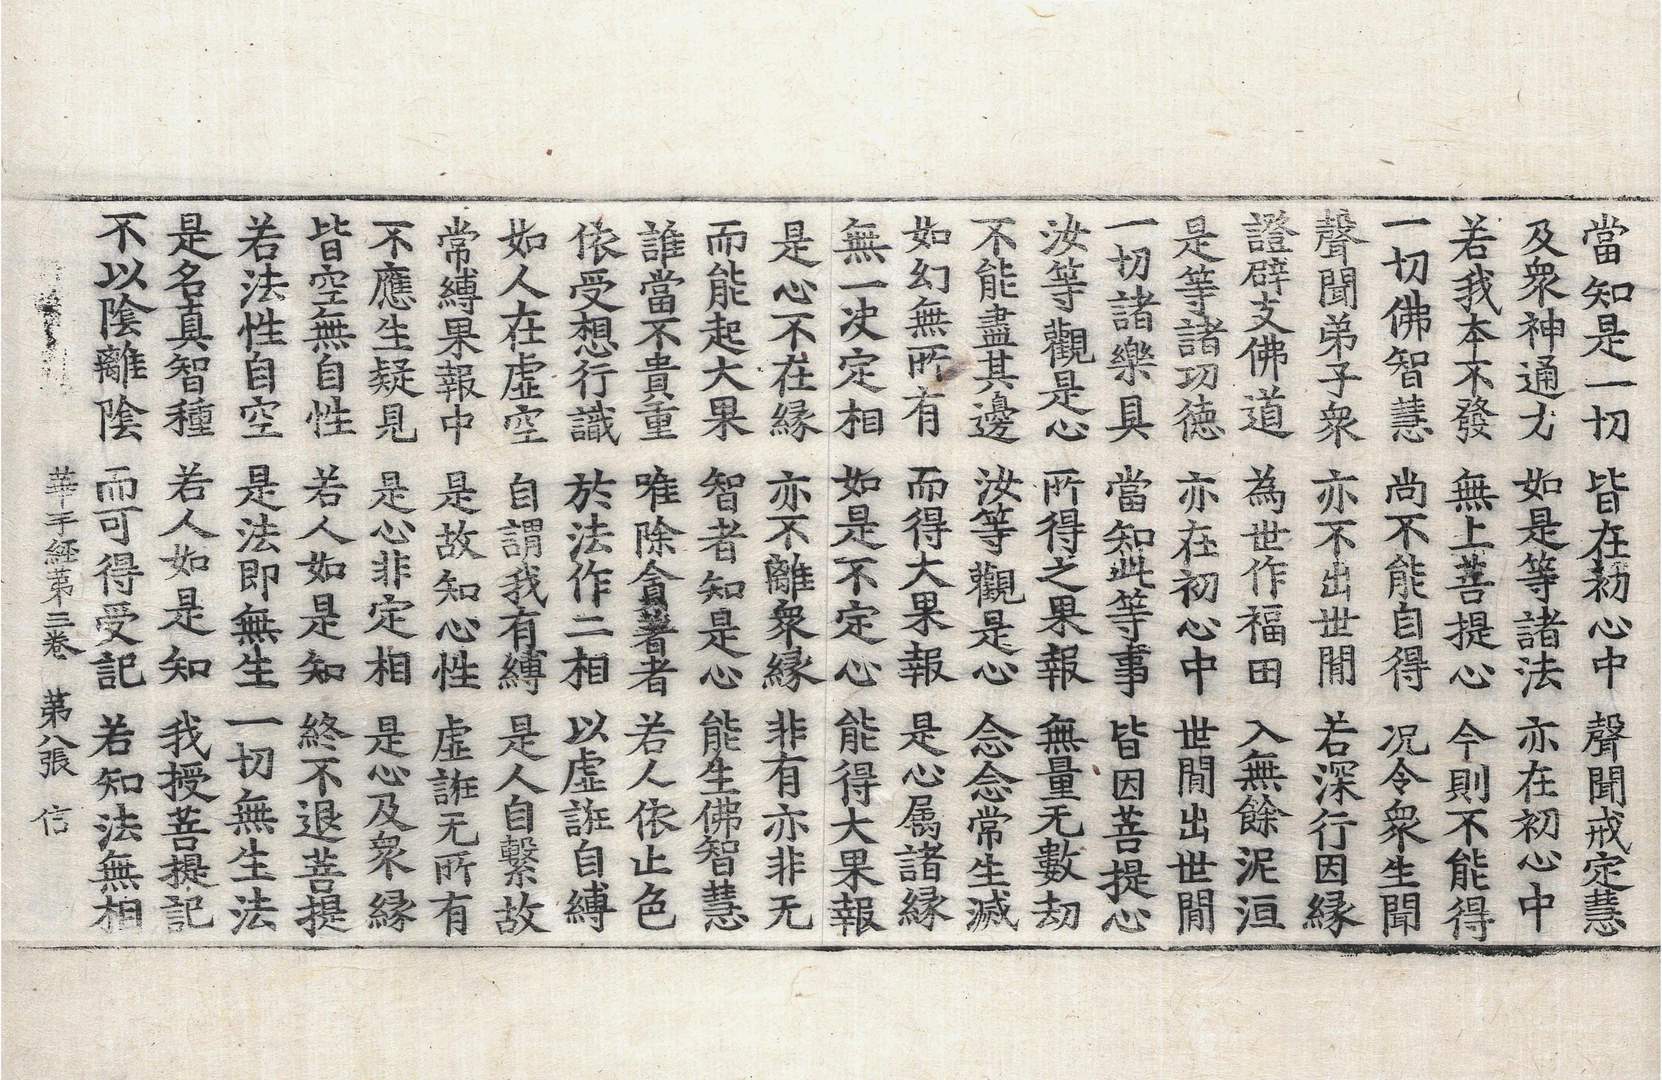 當知是一切 皆在初心中 聲聞戒定慧
及衆神通力 如是等諸法 亦在初心中
若我本不發 無上菩提心 今則不能得
一切佛智慧 尚不能自得 况令衆生聞
聲聞弟子衆 亦不出世間 若深行因縁
證辟支佛道 為世作福田 入無餘泥洹
是等諸功徳 亦在初心中 世間出世間
一切諸樂具 當知此等事 皆因菩提心
汝等觀是心 所得之果報 無量无數劫
不能盡其邊 汝等觀是心 念念常生滅
如幻無所有 而得大果報 是心属諸縁
無一决定相 如是不定心 能得大果報
是心不在縁 亦不離衆縁 非有亦非无
而能起大果 智者知是心 能生佛智慧
誰當不貴重 唯除貪著者 若人依止色
依受想行識 於法作二相 以虚誑自縛
如人在虚空 自謂我有縛 是人自繫故
常縛果報中 是故知心性 虚誑无所有
不應生疑見 是心非定相 是心及衆縁
皆空無自性 若人如是知 終不退菩提
若法性自空 是法即無生 一切無生法
是名真智種 若人如是知 我授菩提記
不以陰離陰 而可得受記 若知法無相
華手経苐三卷 苐八張 信